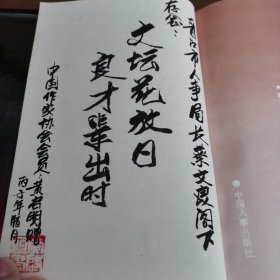 青口市人事局长蔡文霞阁下
存念：
文坛花放日
良才辈出时
中国作家协会会员 黄君明赠
丙子年腊月
中国人事出版社